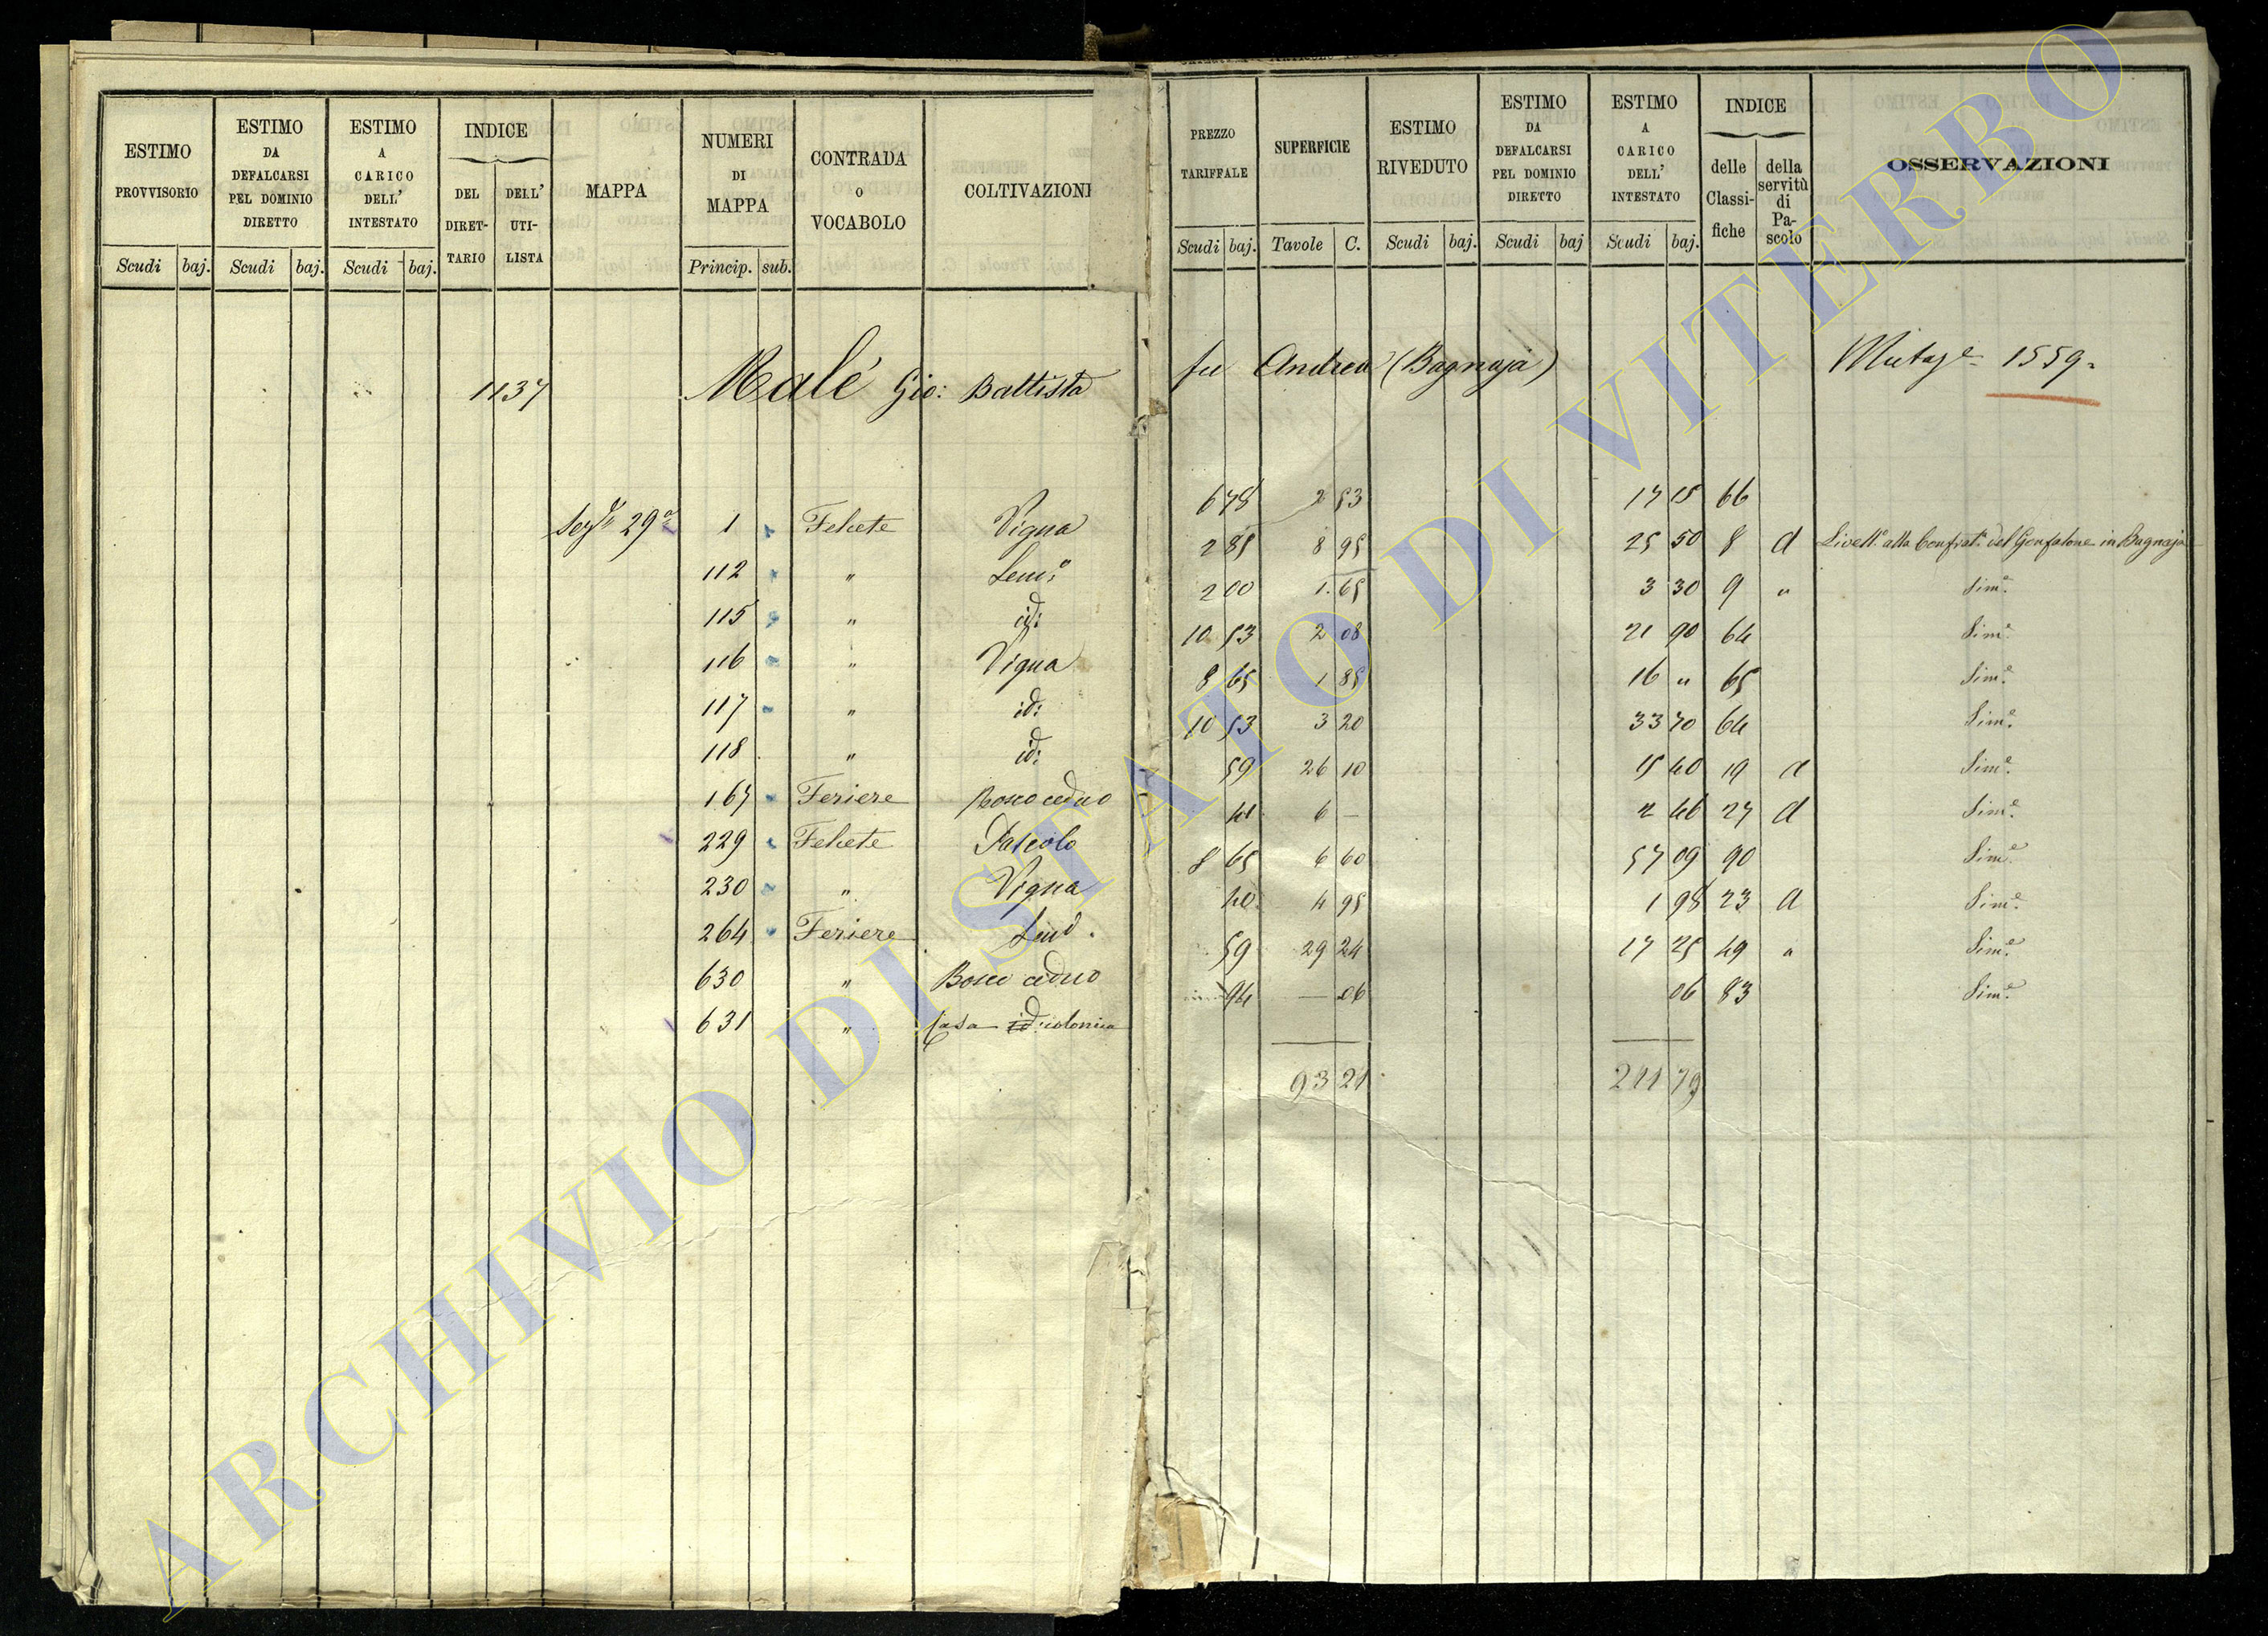 ESTIMO PROVVISORIO
Scudi baj.
ESTIMO DA DEFALCARSI PEL DOMINIO DIRETTO
Scudi baj.
ESTIMO A CARICO DELL' INTESTATO
Scudi baj.
INDICE
DEL DIRET-TARIO
DELL' UTI-LISTA
MAPPA
NUMERI DI MAPPA
Princip. sub.
CONTRADA o VOCABOLO
COLTIVAZIONI
PREZZO TARIFFALE
Scudi baj.
SUPERFICIE
Tavole C.
ESTIMO RIVEDUTO
Scudi baj.
ESTIMO DA DEFALCARSI PEL DOMINIO DIRETTO
Scudi baj
ESTIMO A CARICO DELL' INTESTATO
Scudi baj.
INDICE
delle Classi-fiche
della servitù di Pa-scolo
OSSERVAZIONI
1137 Malé Gio: Battista fu Andrea (Bagnaja) 1559
29a 1 Felcete Vigna 6 78 2 53 17 15 66
112 " Sem° 2 85 8 95 25 50 8 d Livell° alla Confrat. del Gonfalone in Bagnaja
115 " id: 2 00 1 65 3 30 9 " Sim e.
116 " Vigna 10 53 2 08 21 90 64 Sim e.
117 " id: 8 65 1 85 16 " 65 Sim e.
118 " id: 10 53 3 20 33 70 64 Sim e.
167 Feriere Bosco ceduo 59 26 10 15 40 19 d Sim e.
229 Felcete Pascolo 41 6 — 2 46 27 d Sim e.
230 " Vigna 8 65 6 60 57 09 90 Sim e.
264 Feriere Sem d. 40 4 95 1 98 23 d Sim e.
630 " Bosco ceduo 59 29 24 17 25 49 " Sim e.
631 " Casa id: colonica 94 — 06 06 83 Sim e.
93 21 211 79
ARCHIVIO DI STATO DI VITERBO